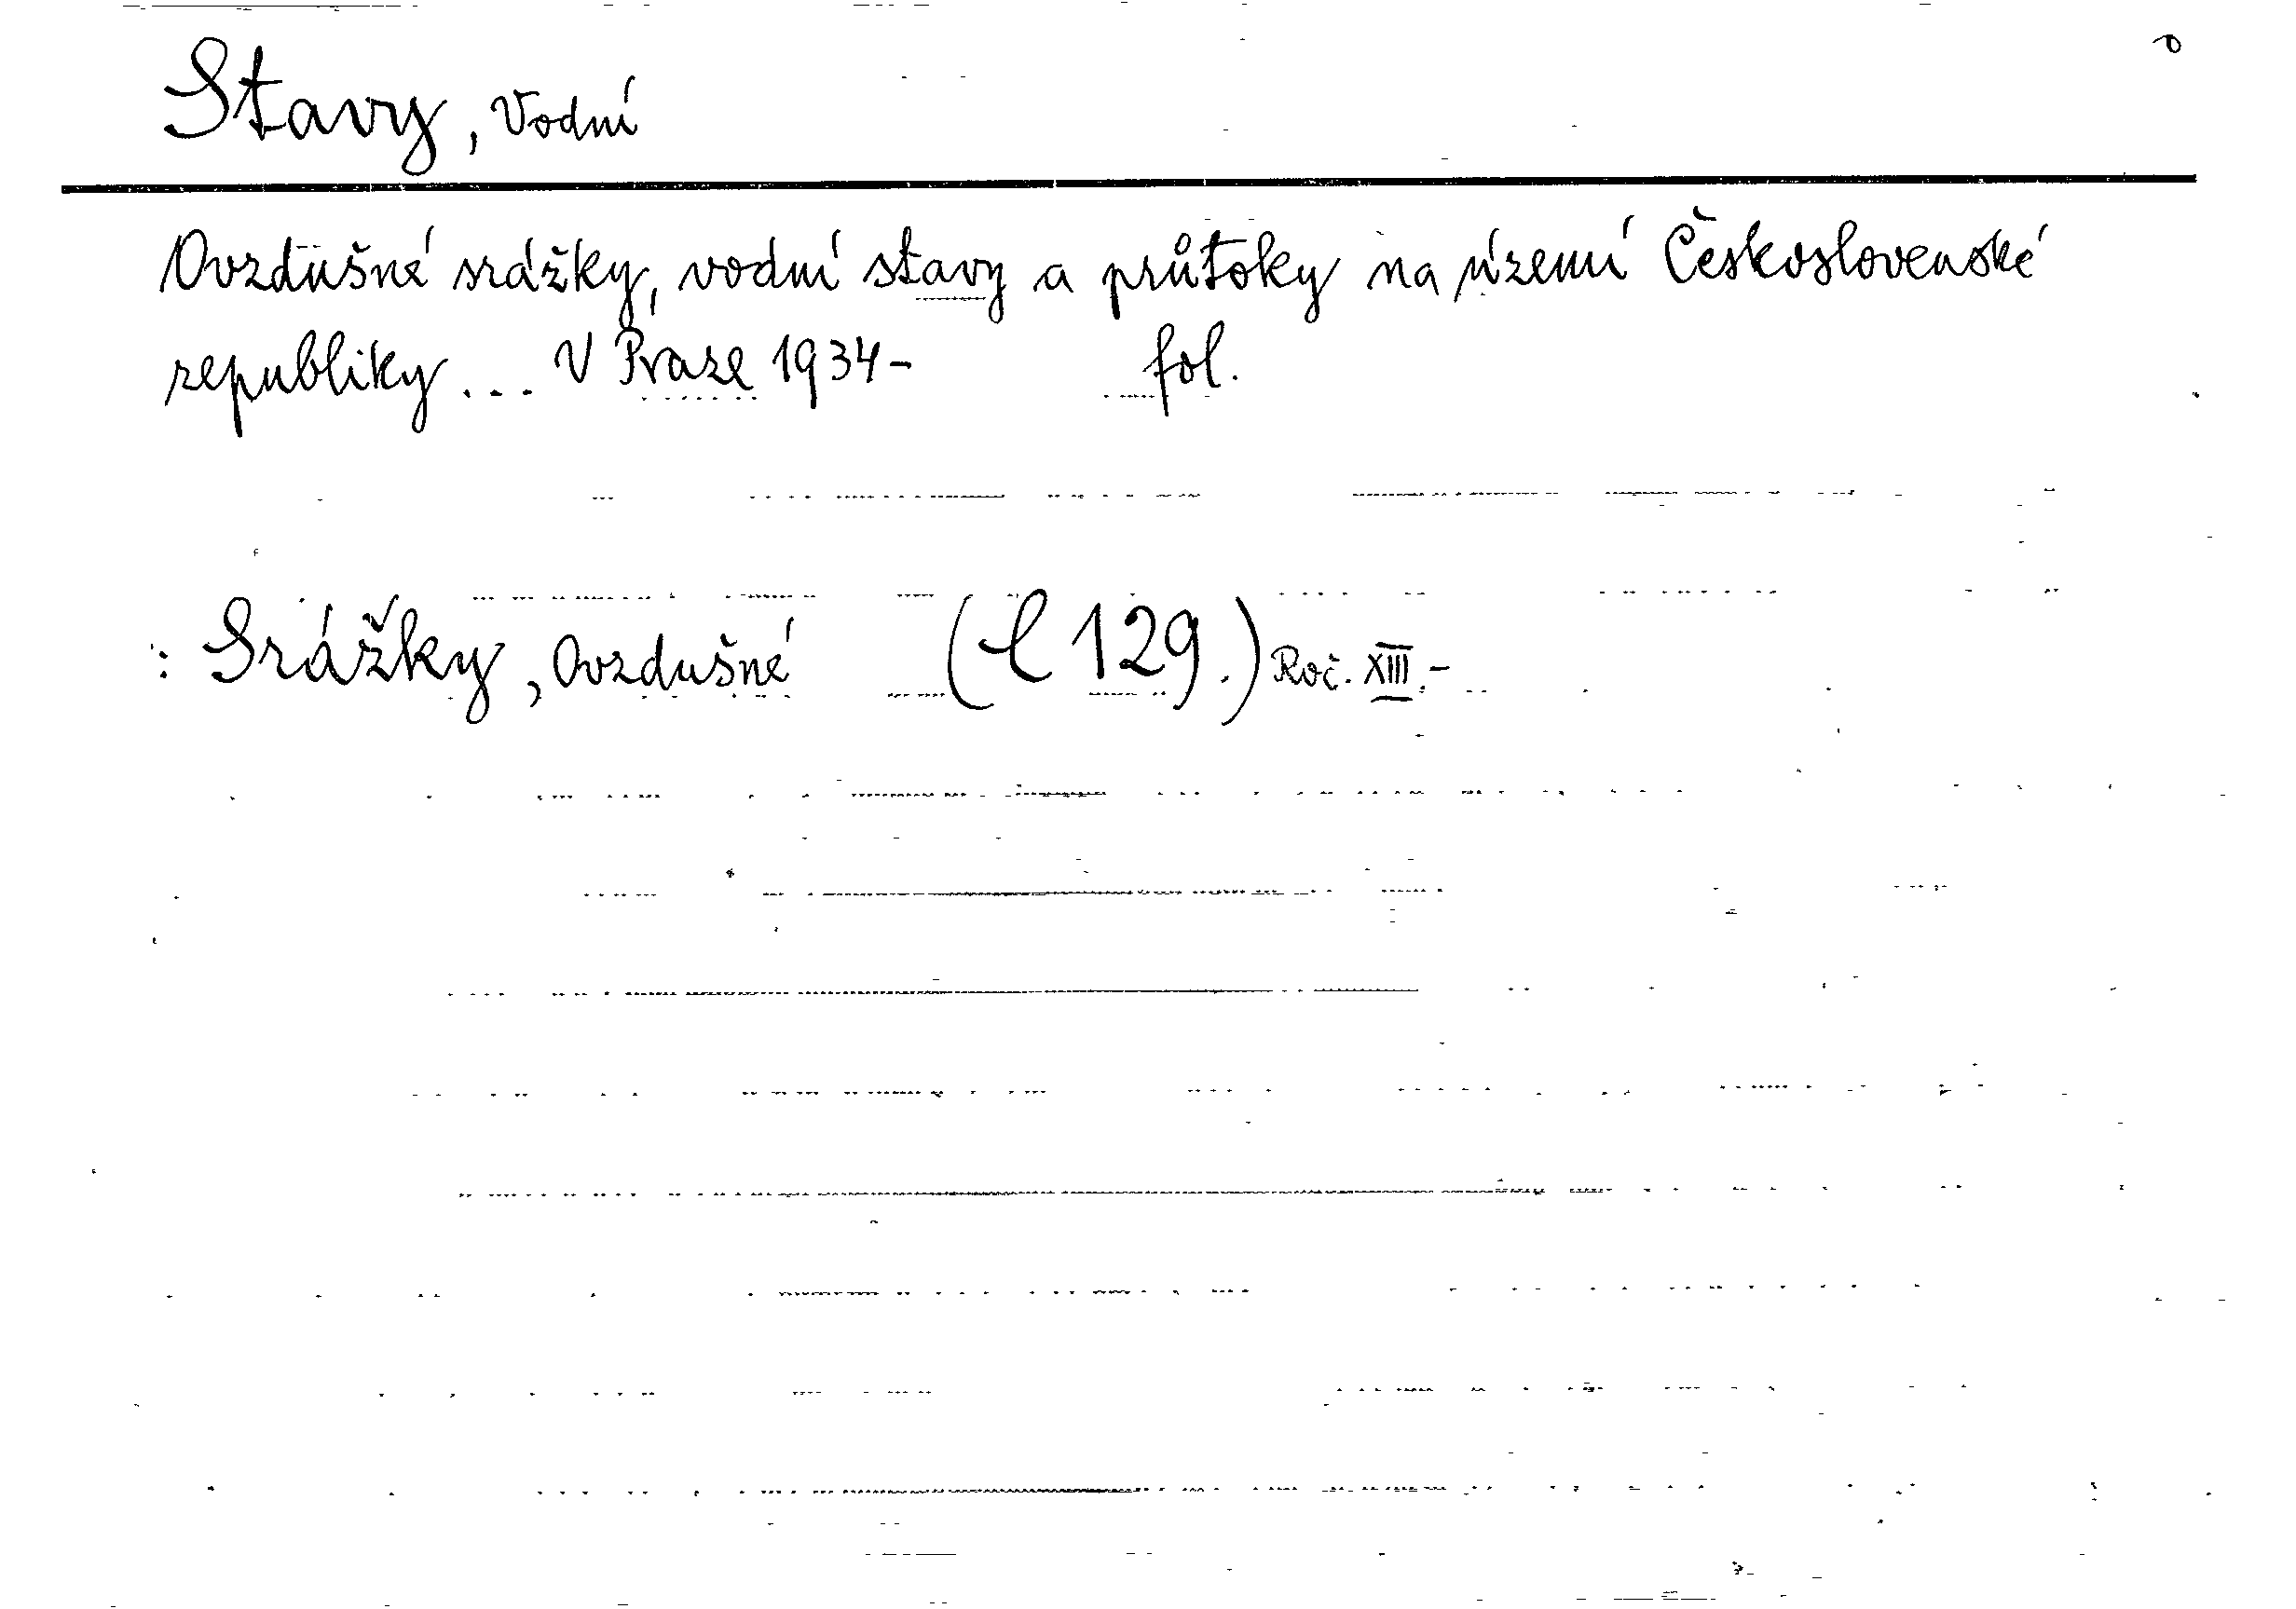 Stavy, Vodní
Ovzdušné srážky, vodní stavy a průtoky na území Československé
republiky... V Praze 1934- fol.
: Srážky, Ovzdušné ( 129.) Roč. XIII.-